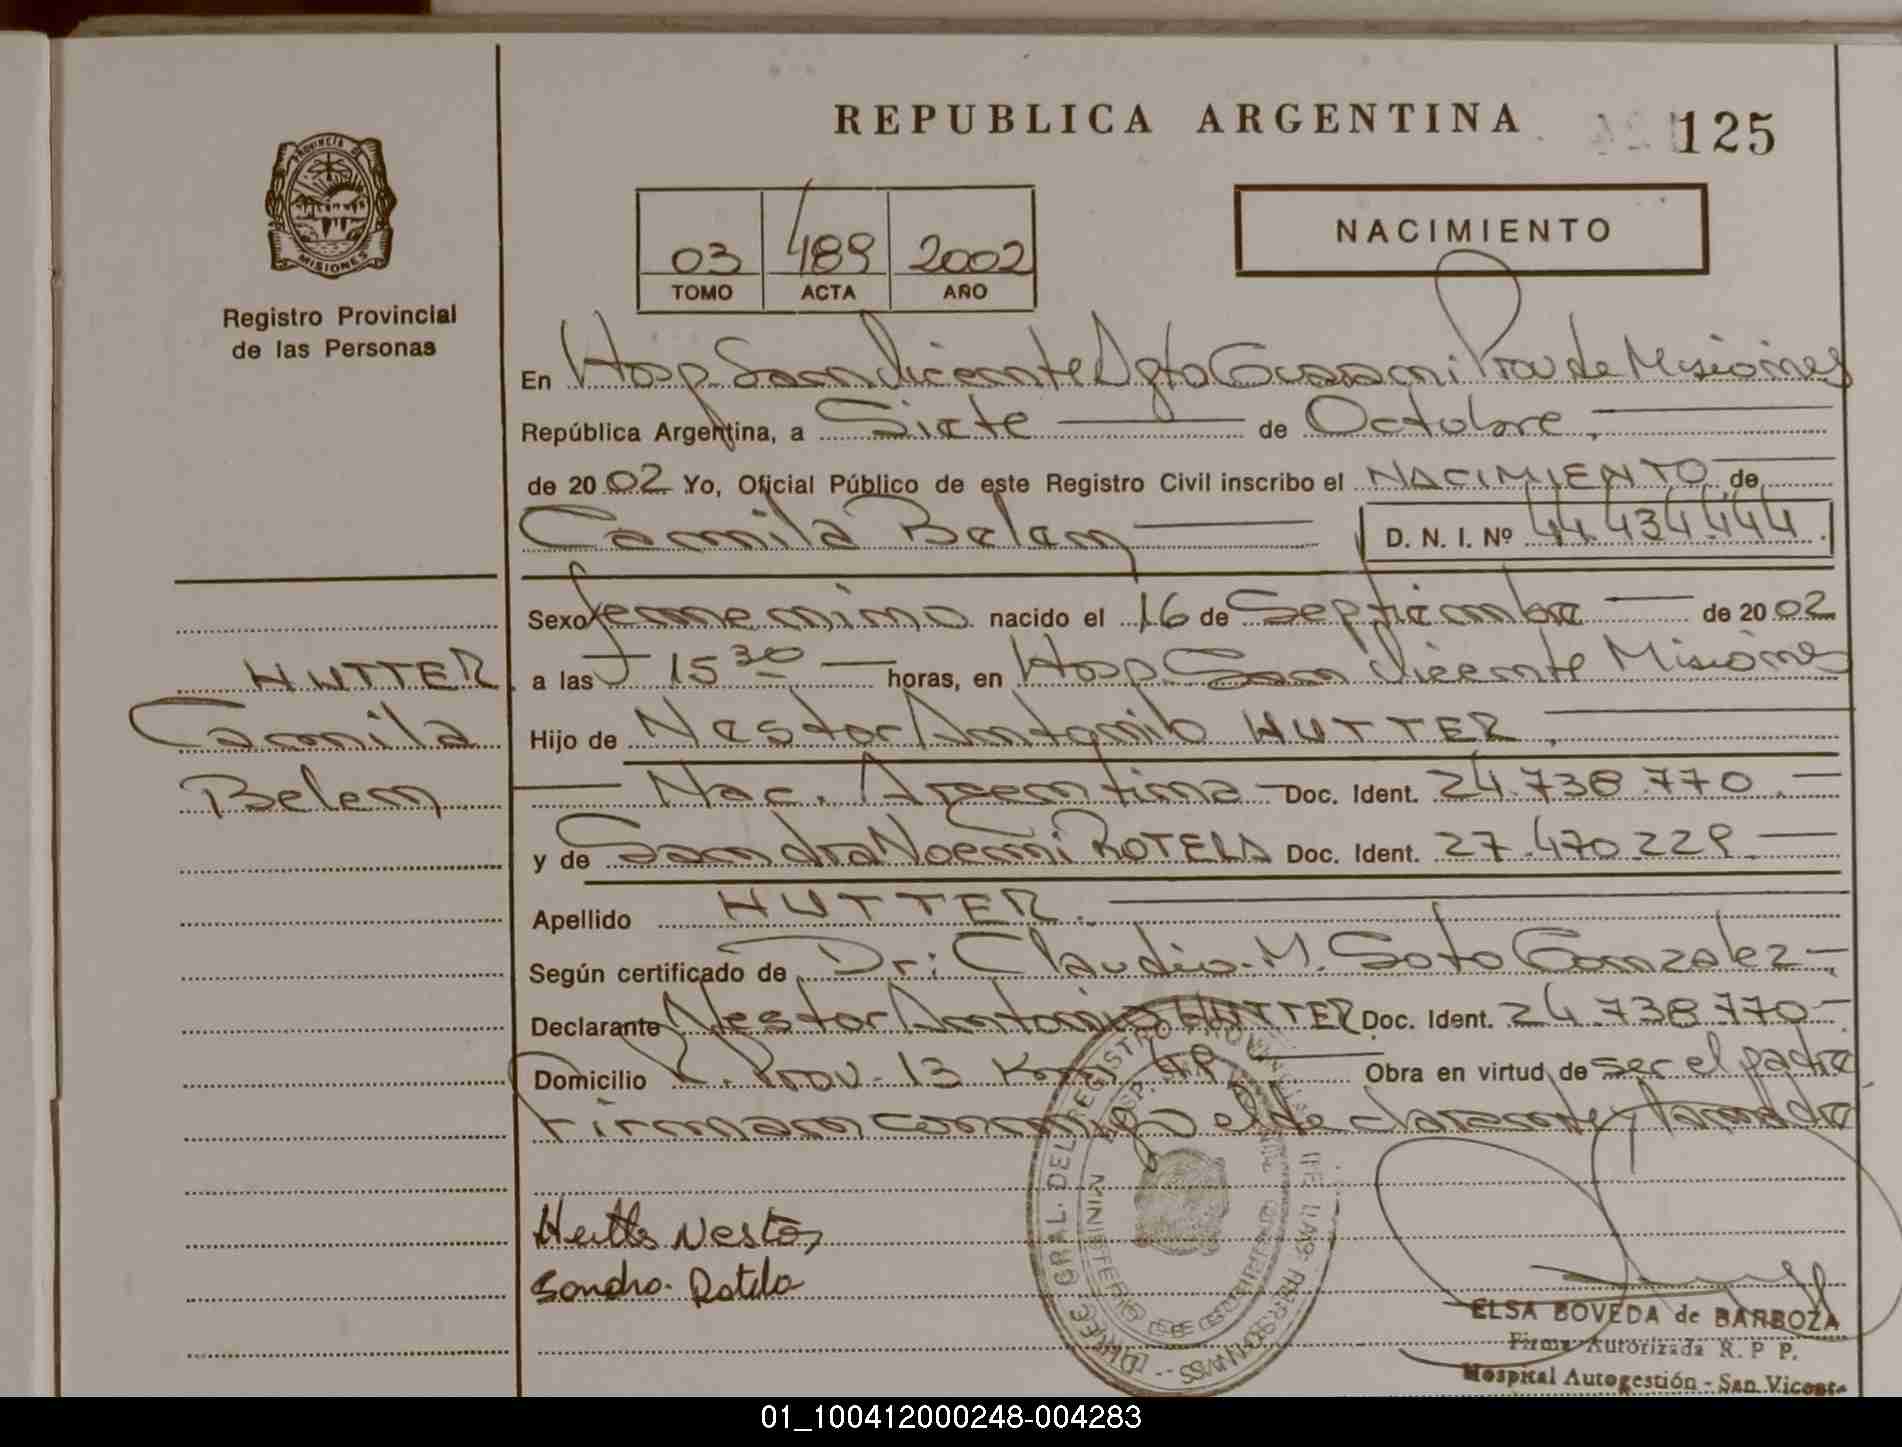 REPUBLICA ARGENTINA
125
PROVINCIA DE
MISIONES
Registro Provincial
de las Personas
03 489 2002
TOMO ACTA AÑO
NACIMIENTO
En Hosp San Vicente Dpto Guarani Prov de Misiones
República Argentina, a Siete de Octubre.
de 2002 Yo, Oficial Público de este Registro Civil inscribo el NACIMIENTO de
Camila Belen D. N. I. Nº 44.434.444.
Sexo femenino nacido el 16 de Septiembre de 2002
HUTTER a las 15 30 horas, en Hosp San Vicente Misiones
Camila Hijo de Nestor Antonio HUTTER.
Belen Nac. Argentina Doc. Ident. 24.738.770.
y de Sandra Noemi ROTELA Doc. Ident. 27.470.229.
Apellido HUTTER.
Según certificado de Dr: Claudio M. Soto Gonzalez
Declarante Nestor Antonio HUTTER Doc. Ident. 24.738.770
Domicilio R. Prov. 13 Km 49 Obra en virtud de ser el padre
Firman conmigo el declarante y la madre
Nestor
Sandra Rotela
ELSA BOVEDA de BARBOZA
Firma Autorizada R. P P.
Hospital Autogestión - San Vicente
01_100412000248-004283